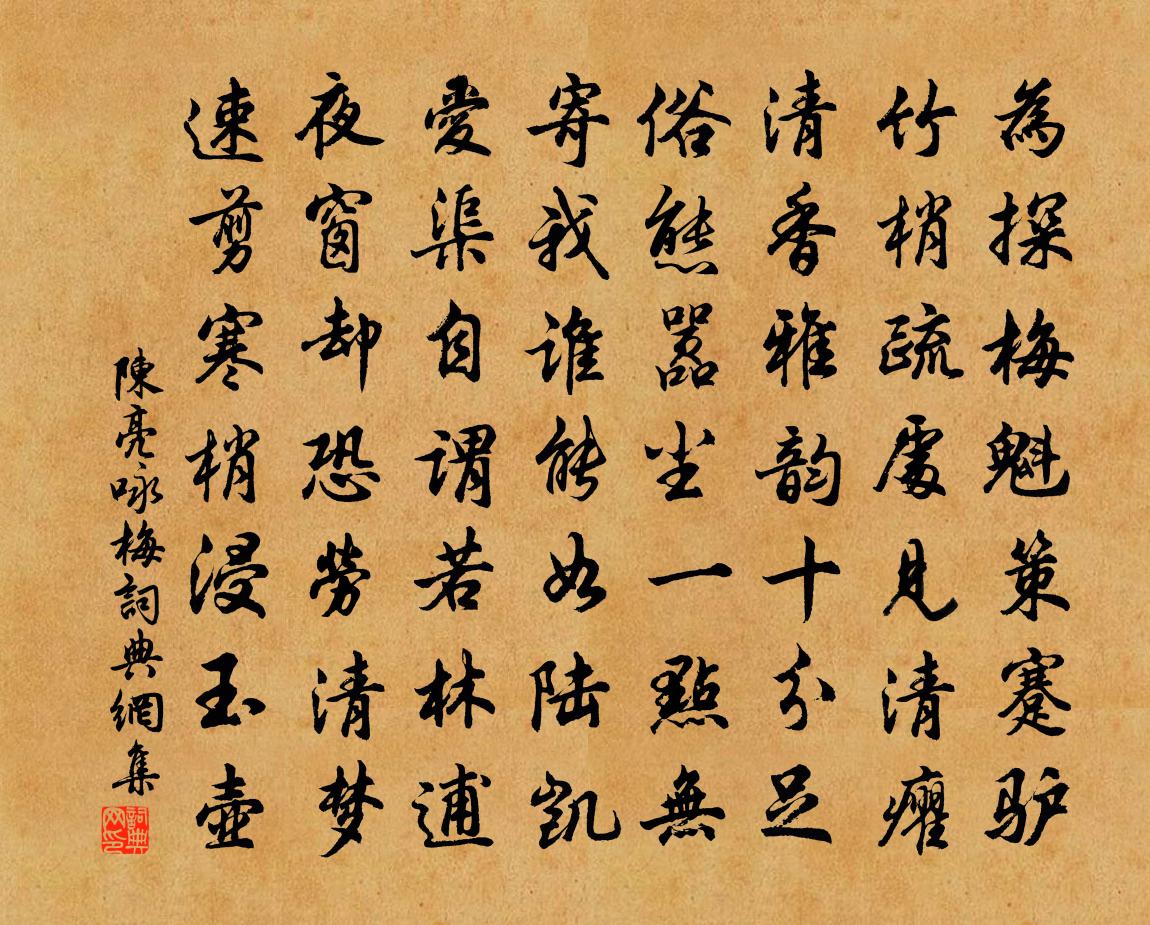 為探梅魁策蹇驴
竹梢疏處見清癯
清香雅韵十分足
俗態嚣尘一點無
寄我谁能如陆凯
愛渠自谓若林逋
夜窗却恐勞清梦
速剪寒梢浸玉壺
陳亮咏梅詞典網集
詞典网印